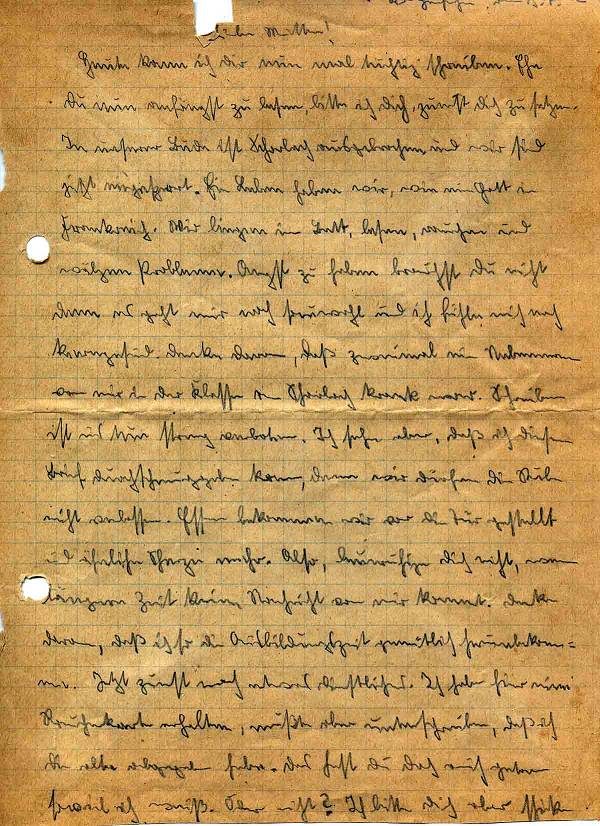 Liebe Mutter!
Heute kann ich dir nun mal richtig schreiben. Ehe
Du nun anfängst zu lesen, bitte ich dich, zuerst dich zu setzen.
In unserer Bude ist Scharlach ausgebrochen und wir sind
jetzt eingesperrt. Ein Leben haben wir, wie ein Gott in
Frankreich. Wir liegen im Bett, lesen, rauchen und
wälzen Probleme. Angst zu haben brauchst Du nicht
denn es geht mir noch sauwohl und ich fühle mich noch
kerngesund. Denke daran, daß zweimal ein Nebenmann
von mir in der Klasse an Scharlach krank war. Schreiben
ist uns nun streng verboten. Ich sehe aber, daß ich diesen
Brief durchschmuggeln kann, denn wir dürfen die Stube
nicht verlassen. Essen bekommen wir vor die Tür gestellt
und ähnliche Scherze mehr. Also, beunruhige dich nicht, wenn
längere Zeit keine Nachricht von mir kommt. Denke
daran, daß ich so die Ausbildungszeit gemütlich herumbekom=
me. Jetzt zuerst noch etwas dienstliches. Ich habe hier eine
Raucherkarte erhalten, mußte aber unterschreiben, daß ich
die alte abgegeben habe. Das hast du doch auch getan
soviel ich weiß. Oder nicht? Ich bitte dich aber schicke